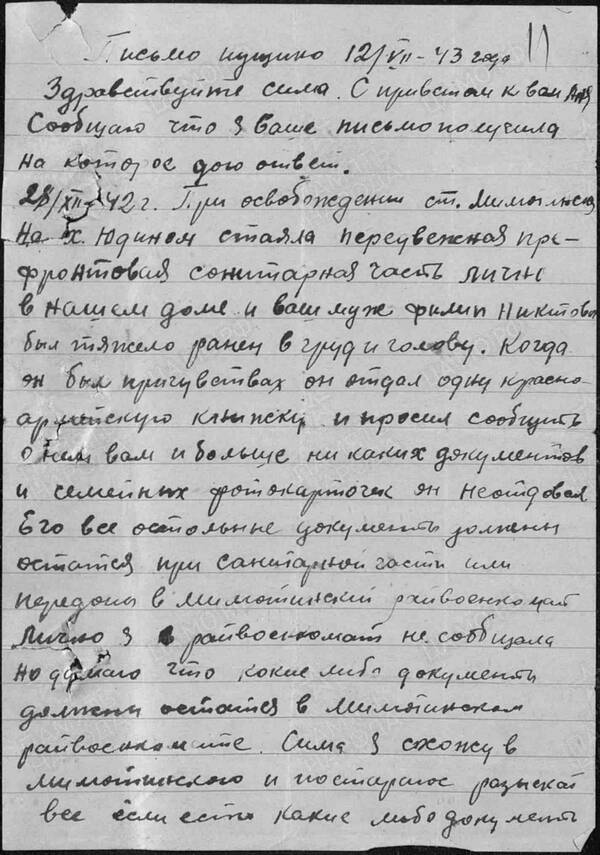 11
Письмо пущино 12/VII-43 года
Здравствуйте сима. С приветом к вам Аня
Сообщаю что я ваше письмо получила
на которое дою ответ.
28/XII-42 г. При освобождении ст.
На х. Юдином стаяла передвежная при-
фронтовая сонитарная часть личн
в нашем доме и ваш муж филип Никитов
был тяжело ранен в груд и голову. Когда
он был причувствах он отдал одну красно-
армейскую кныжку и просил сообщить
о нем вам и больше ни каких документов
и семейных фотокарточек он неотдовал
Его все остольные документы должны
остатся при санитарной части или
передоны в райвоенкомат
Лично я в райвоенкомат не сообщала
но думаю что кокие либо документы
должны остатся в
райвоенкомате. Сима я схожу в
и постараюс разыскат
все если есть какие либо документы